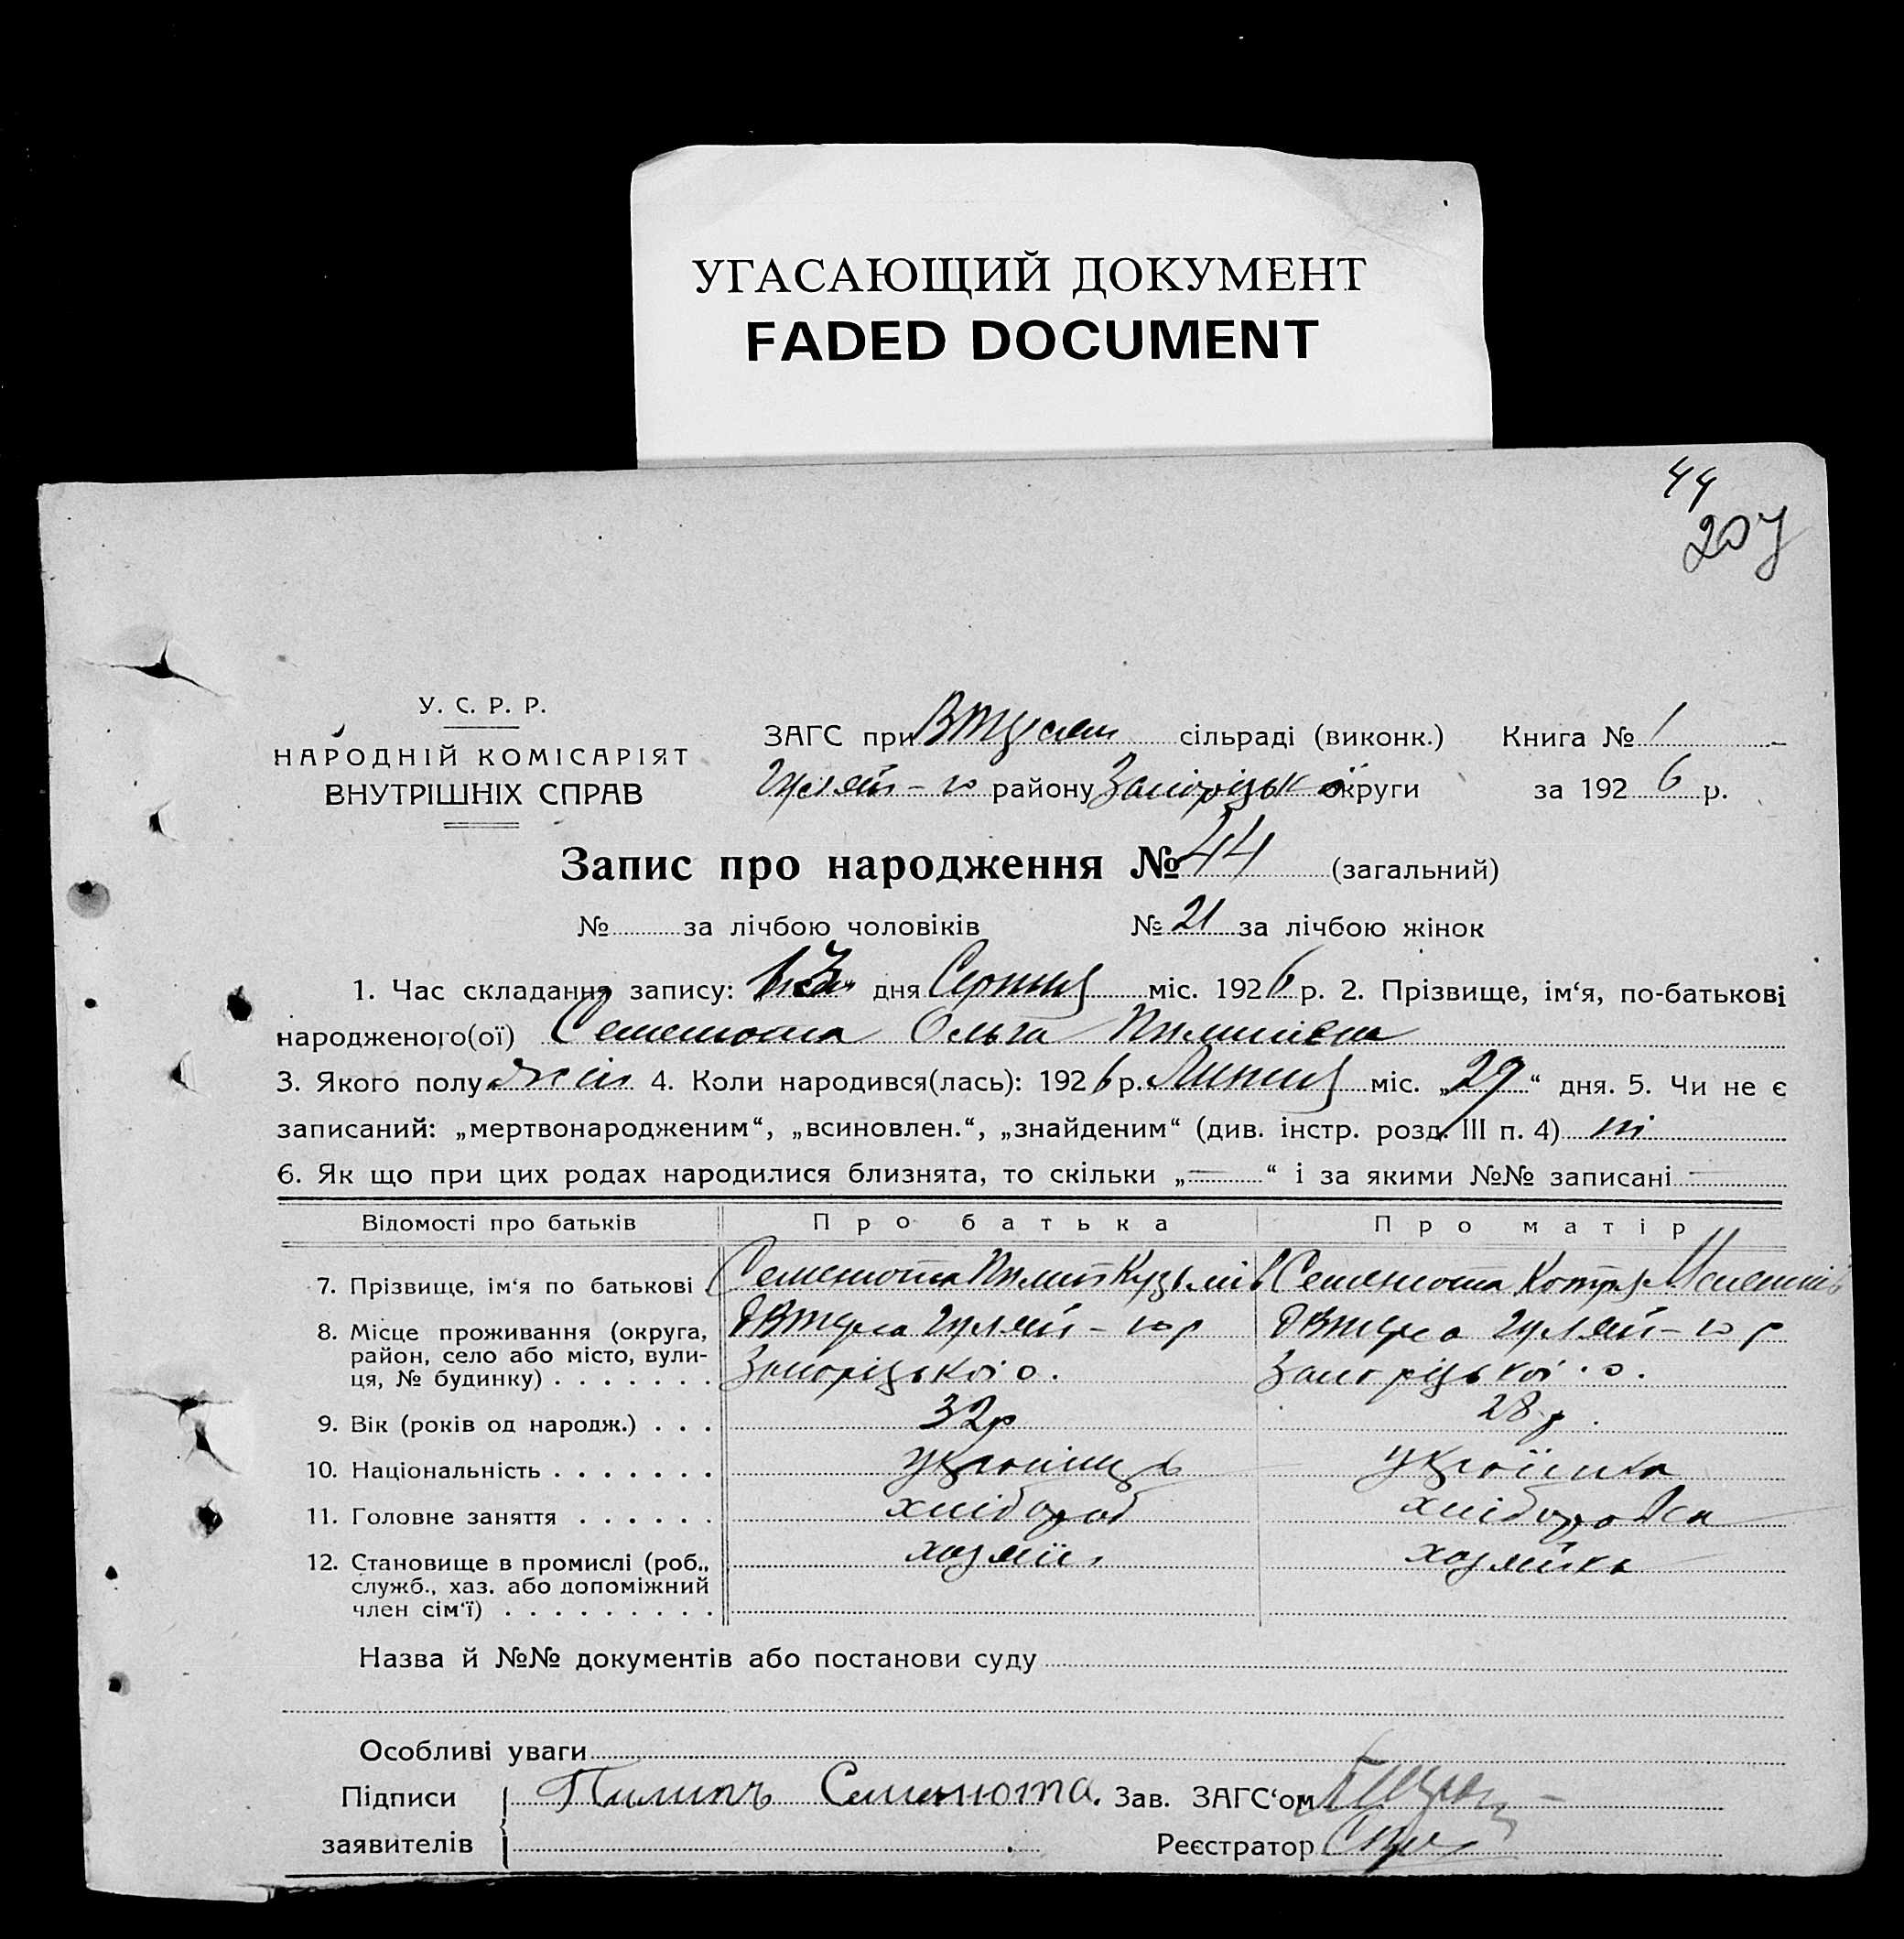 УГАСАЮЩИЙ ДОКУМЕНТ
FADED DOCUMENT
44
207
У. С. Р. Р.
НАРОДНІЙ КОМІСАРІЯТ
ВНУТРІШНІХ СПРАВ
ЗАГС при сільраді (виконк.) Книга № 1
Гуляй-по району Запорізької округи за 1926 р.
Запис про народження № 44 (загальний)
№ за лічбою чоловіків № 21 за лічбою жінок
1. Час складання запису: дня Серпня міс. 1926 р. 2. Прізвище, ім‘я, по-батькові
народженого(ої) Семенюта Ольга Пилипівна
3. Якого полу жін 4. Коли народився(лась): 1926 р. Липня міс. „29“ дня. 5. Чи не є
записаний: „мертвонародженим“, „всиновлен.“, „знайденим“ (див. інстр. розд. III п. 4) ні
6. Як що при цих родах народилися близнята, то скільки „—“ і за якими №№ записані —
Відомості про батьків Про батька Про матір
7. Прізвище, ім‘я по батькові Семенюта Пилип Кузьмів Семенюта
8. Місце проживання (округа, Гуляй-по р Гуляй-по р
район, село або місто, вули-
ця, № будинку) . . . . . . . Запорізької о. Запорізької о.
9. Вік (років од народж.) . . . 32 р 28 р.
10. Національність . . . . . . . українець українка
11. Головне заняття . . . . . . хлібороб хліборобка
12. Становище в промислі (роб., хазяїн хазяйка
служб., хаз. або допоміжний
член сім‘ї) . . . . . . . . .
Назва й №№ документів або постанови суду
Особливі уваги
Підписи Пилипъ Семенюта. Зав. ЗАГС‘ом
заявителів Реєстратор